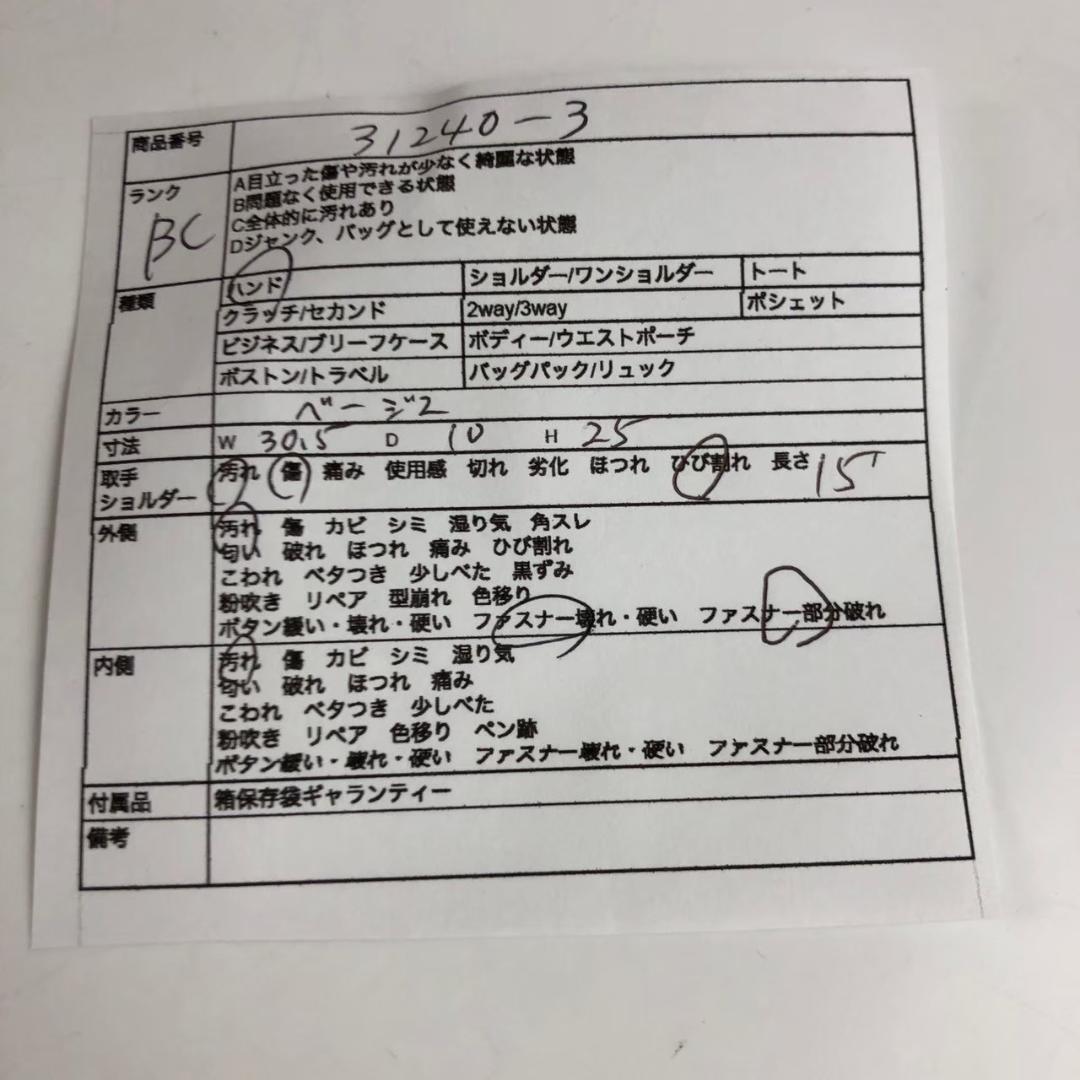 商品番号 31240-3
ランク BC
A目立った傷や汚れが少なく綺麗な状態
B問題なく使用できる状態
C全体的に汚れあり
Dジャンク、バッグとして使えない状態
種類 ハンド ショルダー/ワンショルダー トート
クラッチ/セカンド 2way/3way ポシェット
ビジネス/ブリーフケース ボディー/ウエストポーチ
ボストン/トラベル バッグパック/リュック
カラー ベージ2
寸法 W 30.5 D 10 H 25
取手 汚れ 傷 痛み 使用感 切れ 劣化 ほつれ ひび割れ 長さ 15
ショルダー
外側 汚れ 傷 カビ シミ 湿り気 角スレ
匂い 破れ ほつれ 痛み ひび割れ
こわれ ベタつき 少しべた 黒ずみ
粉吹き リペア 型崩れ 色移り
ボタン緩い・壊れ・硬い ファスナー壊れ・硬い ファスナー部分破れ
内側 汚れ 傷 カビ シミ 湿り気
匂い 破れ ほつれ 痛み
こわれ ベタつき 少しべた
粉吹き リペア 色移り ペン跡
ボタン緩い・壊れ・硬い ファスナー壊れ・硬い ファスナー部分破れ
付属品 箱保存袋ギャランティー
備考